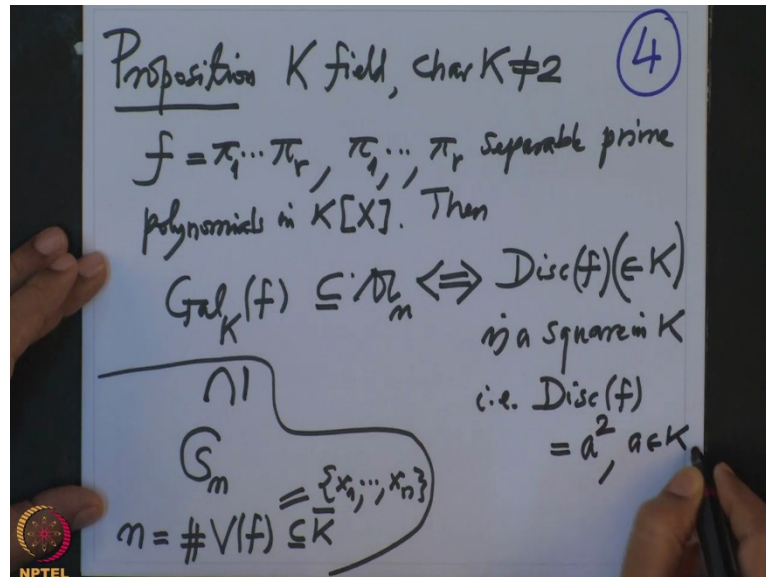 Proposition K field, char K ≠ 2
4
f = π₁⋯π_r, π₁, ⋯, π_r separable prime
polynomials in K[X]. Then
Gal_K(f) ⊆ 𝔄_n ⟺ Disc(f)(∈ K)
is a square in K
i.e. Disc(f)
= a², a ∈ K
∩|
𝔖_n
= {x₁, ⋯, x_n}
n = #V(f) ⊆ K̄
NPTEL